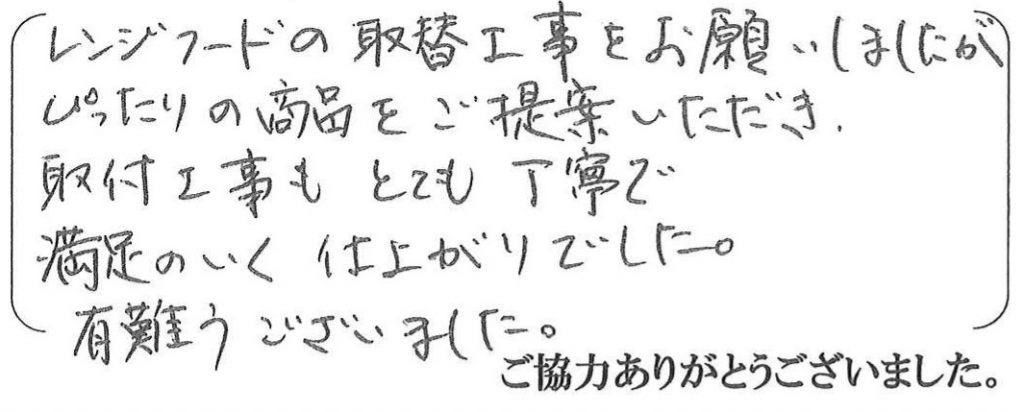 レンジフードの取替工事をお願いしましたが
ぴったりの商品をご提案いただき、
取付工事もとても丁寧で
満足のいく仕上がりでした。
有難うございました。
ご協力ありがとうございました。